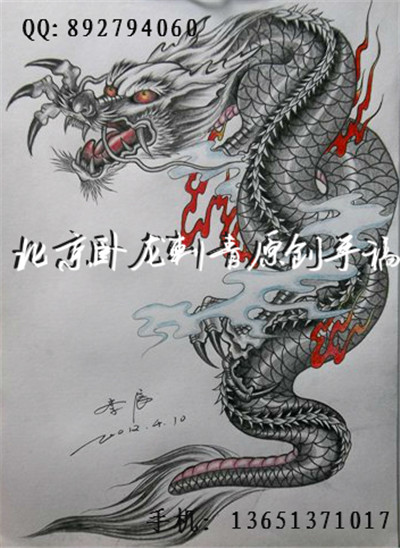 QQ: 892794060
北京卧龙刺青原创手稿
李辰
2012.4.10
手机: 13651371017